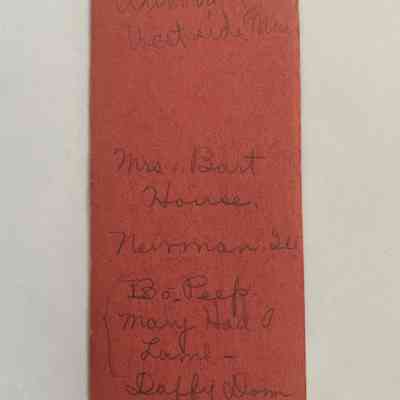 Westside, Mrs
Mrs. Bart
House.
Newman Ill
Bo-Peep.
Mary Had a
Lamb -
Daffy Down